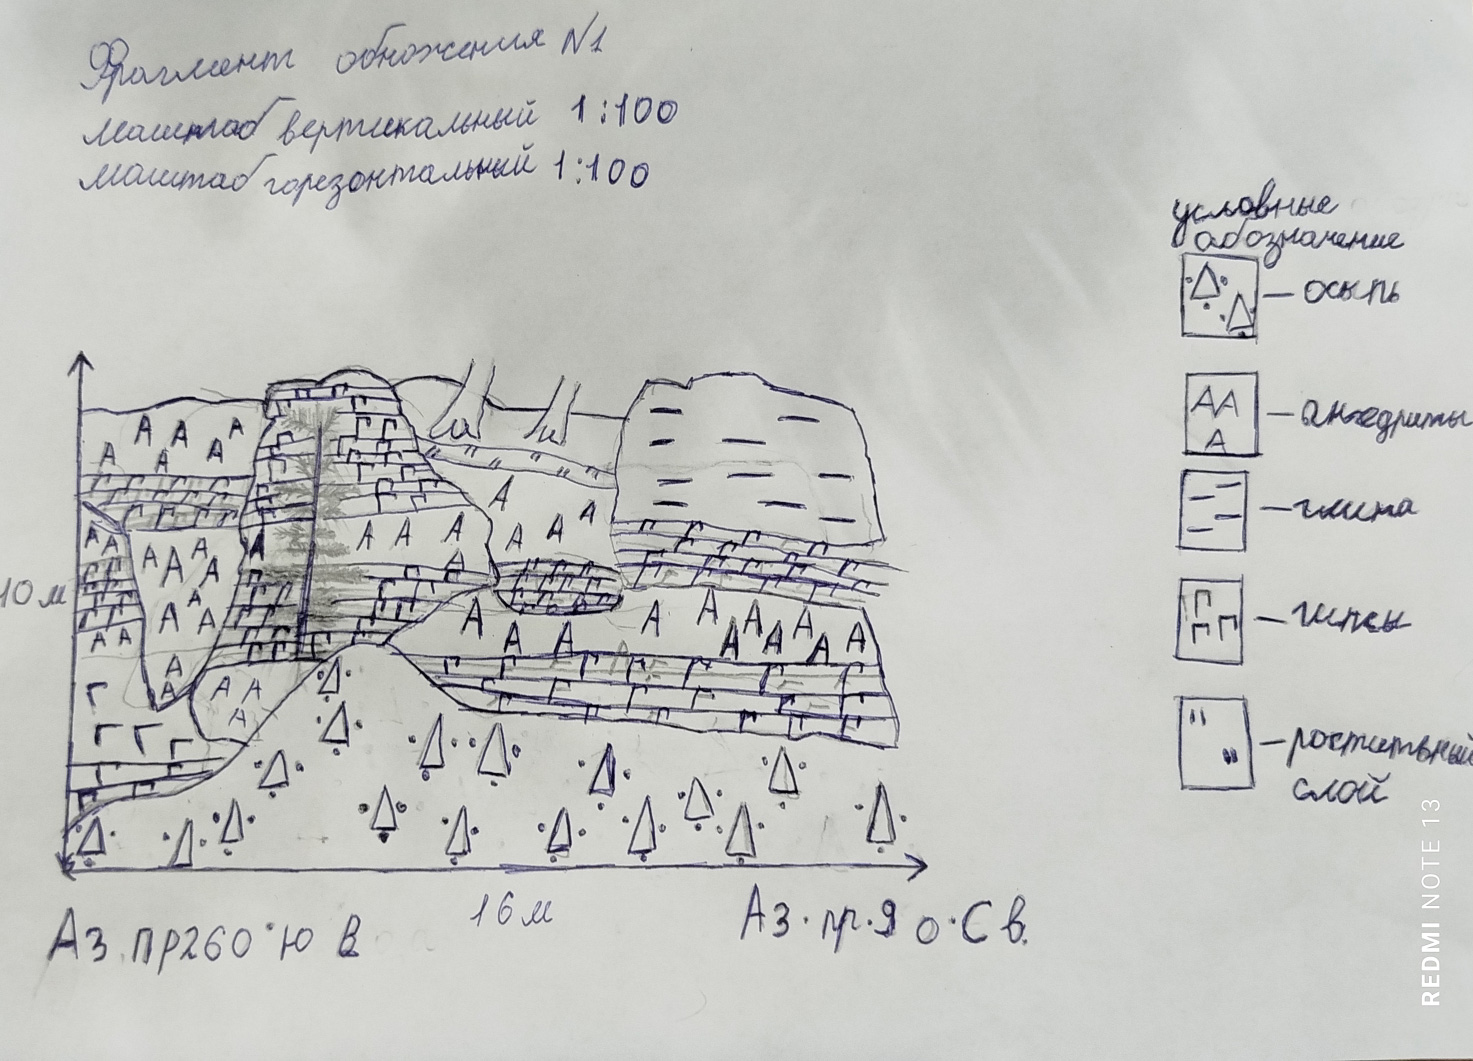 Фрагмент обножения N1
Масштаб вертикальный 1:100
масштаб горезонтальный 1:100
условные
абозначение
осыпь
ангедриты
глина
гипсы
роститвный
слой
10 м
16 м
Аз.пр260°Ю В
Аз.пр.9 0.С в.
REDMI NOTE 13